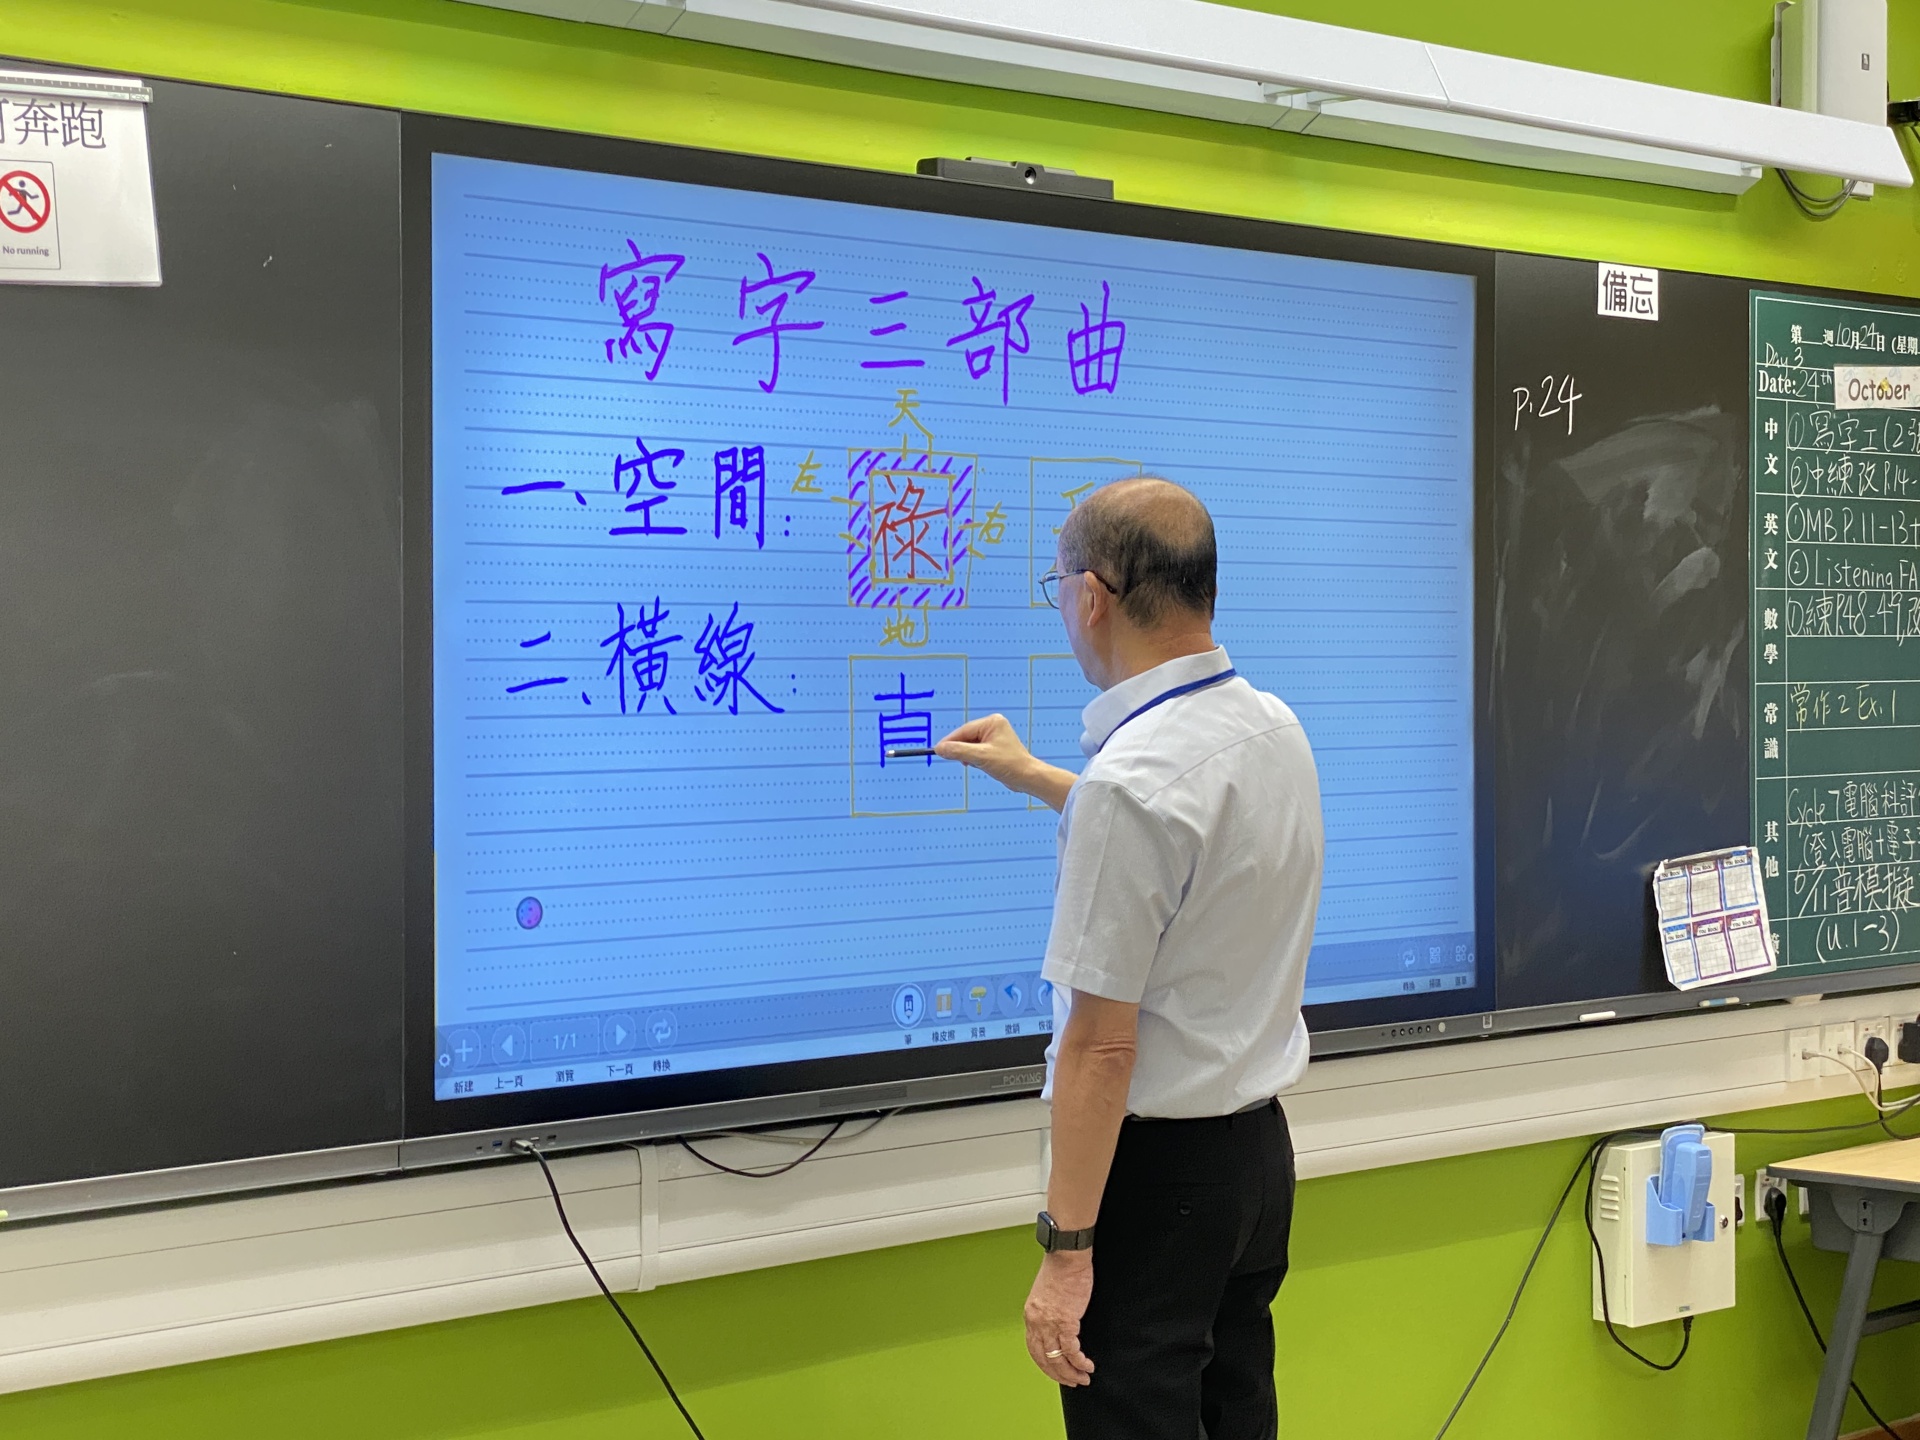 奔跑
No running
寫字三部曲
天
一、空間：
左
祿
右
地
二、橫線：
新建
上一頁
1/1
瀏覽
下一頁
轉換
筆
橡皮擦
背景
撤銷
恢復
POKYING
備忘
P.24
第 週10月24日(星期
Day 3
Date: 24th
October
中文
①寫字工(2張
②中練改 P.14-
英文
①MB P.11-13+
②Listening FA
數學
①練P.48-49,改
常識
常作2 Ex.1
其他
Cycle 7 電腦科評
(登入電腦+電子
小普模擬
(u.1-3)